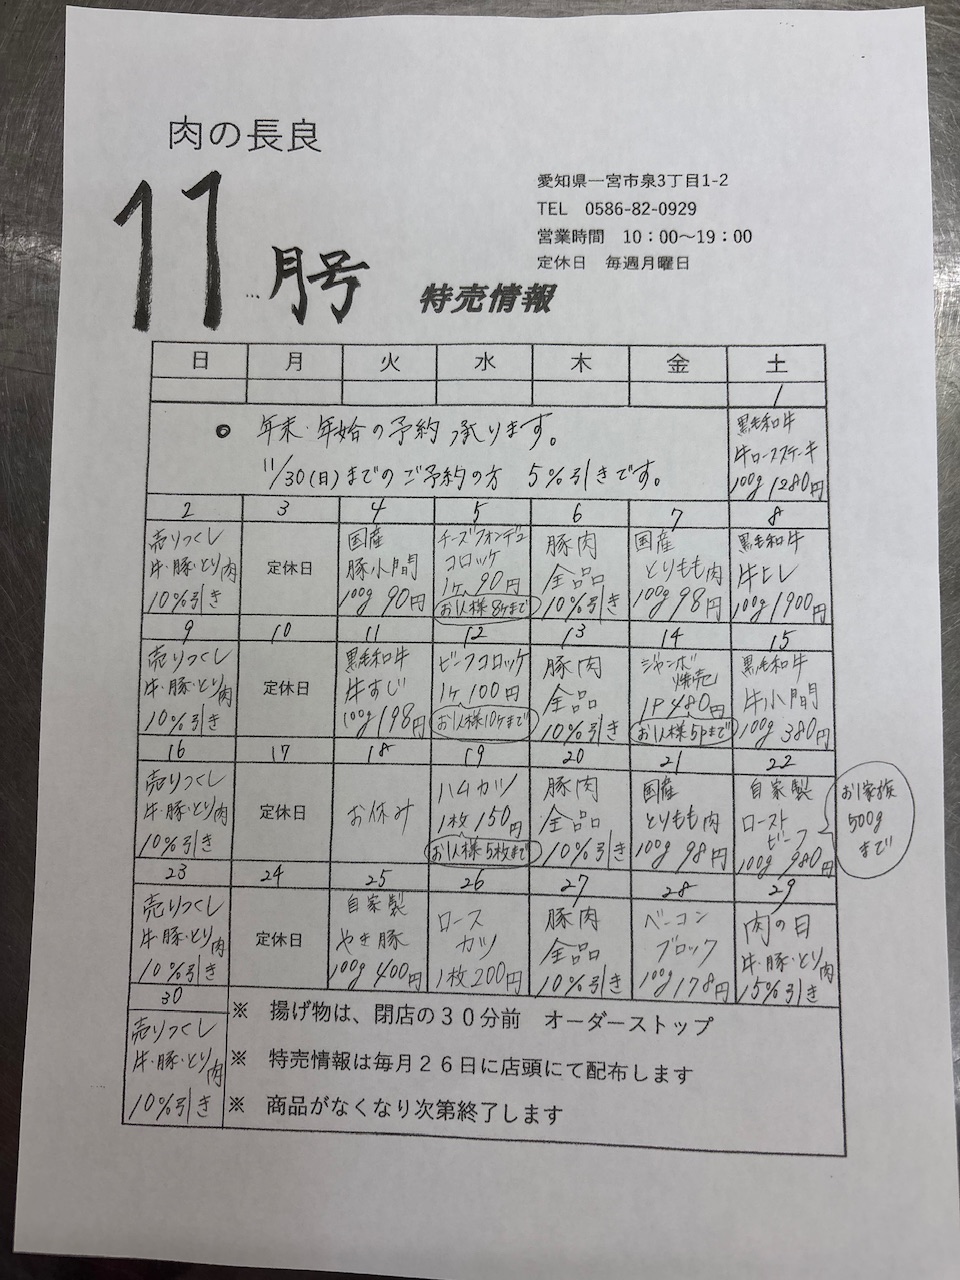 肉の長良
11月号
愛知県一宮市泉3丁目1-2
TEL 0586-82-0929
営業時間 10：00～19：00
定休日 毎週月曜日
特売情報
日 月 火 水 木 金 土
1
○ 年末・年始の予約 承ります。
11/30(日)までのご予約の方 5%引きです。
黒毛和牛
牛ロースステーキ
100g 1280円
2 3 4 5 6 7 8
売りつくし
牛・豚・とり肉
10%引き
定休日
国産
豚小間
100g 90円
チーズフォンデュ
コロッケ
1ヶ 90円
お1人様8ヶまで
豚肉
全品
10%引き
国産
とりもも肉
100g 98円
黒毛和牛
牛ヒレ
100g 1900円
9 10 11 12 13 14 15
売りつくし
牛・豚・とり肉
10%引き
定休日
黒毛和牛
牛すじ
100g 198円
ビーフコロッケ
1ヶ 100円
お1人様10ヶまで
豚肉
全品
10%引き
ジャンボ
焼売
1P 480円
お1人様5Pまで
黒毛和牛
牛小間
100g 380円
16 17 18 19 20 21 22
売りつくし
牛・豚・とり肉
10%引き
定休日
お休み
ハムカツ
1枚 150円
お1人様5枚まで
豚肉
全品
10%引き
国産
とりもも肉
100g 98円
自家製
ロースト
ビーフ
100g 980円
お1家族
500g
まで
23 24 25 26 27 28 29
売りつくし
牛・豚・とり肉
10%引き
定休日
自家製
やき豚
100g 400円
ロース
カツ
1枚 200円
豚肉
全品
10%引き
ベーコン
ブロック
100g 178円
肉の日
牛・豚・とり肉
15%引き
30
売りつくし
牛・豚・とり肉
10%引き
※ 揚げ物は、閉店の３０分前 オーダーストップ
※ 特売情報は毎月２６日に店頭にて配布します
※ 商品がなくなり次第終了します